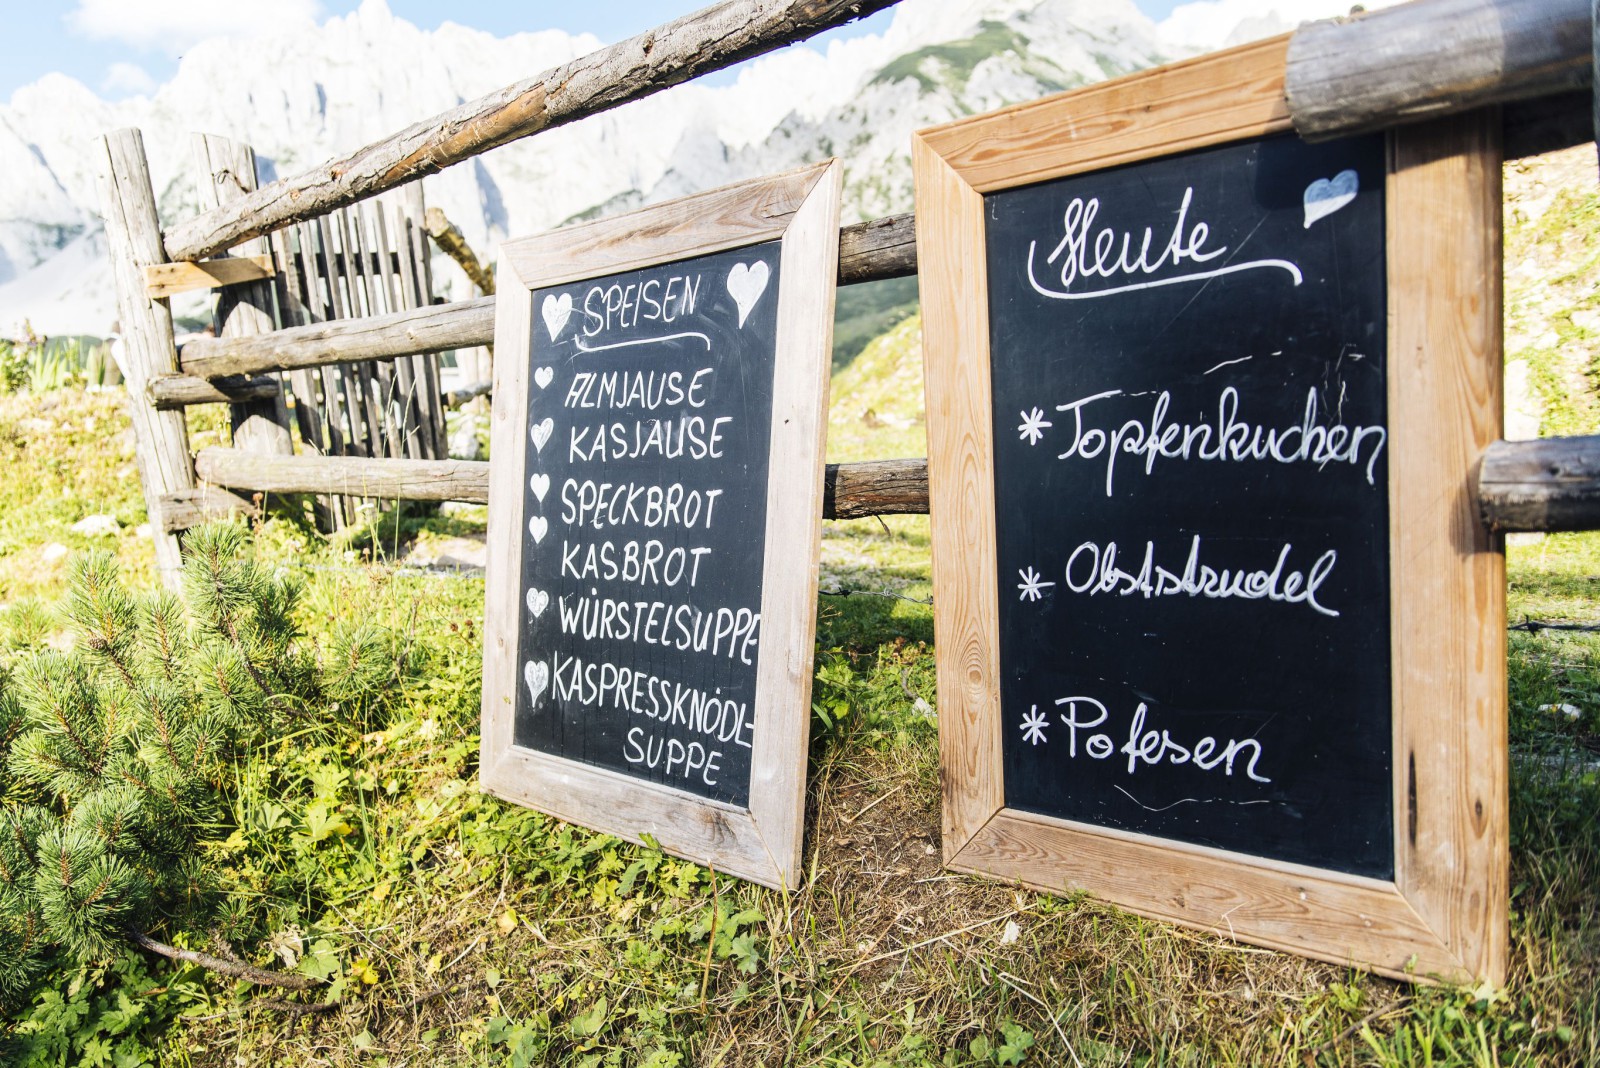 SPEISEN
ALMJAUSE
KASJAUSE
SPECKBROT
KASBROT
WÜRSTELSUPPE
KASPRESSKNÖDL-
SUPPE
Heute
* Topfenkuchen
* Obststrudel
* Pofesen